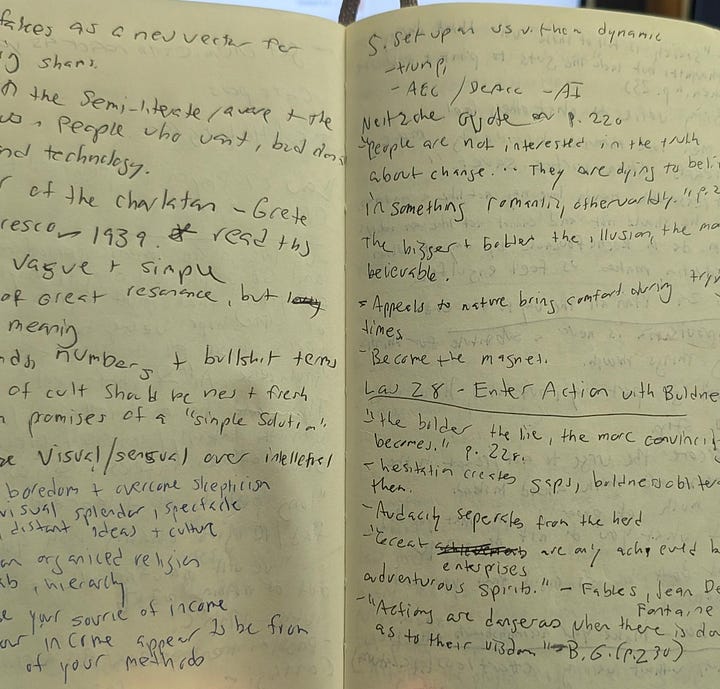 fakes as a new vector for
ig shams.
the semi-literate / aware + the
, people who want, but dont
nd technology.
of the charlatan - Grete
resco 1939. read this
vague + simple
of Great resonance, but
meaning
numbers + bullshit terms
of cult should be new + fresh
promises of a "simple solution".
Visual/sensual over intellectual
boredom + overcome skepticism
visual splendor, spectacle
distant ideas + culture
organized religion
, hierarchy
your source of income
our income appear to be from
of your methods
5. Set up an us v. them dynamic
- trump,
- AEC / Deacc - AI
Neitzche Quote p. 220
"People are not interested in the truth
about change... They are dying to beli
in something romantic, otherworldly." p. 2
The bigger + bolder the illusion, the mo
believable.
Appeals to nature bring comfort during tryi
times.
- Become the magnet.
Law 28 - Enter Action with Boldne
"the bolder the lie, the more convinci
becomes." p. 228.
- hesitation creates gaps, boldness obliter
them.
- Audacity seperates from the herd
- "Great are only achieved b
enterprises
adventurous spirits." - Fables, Jean De
Fontaine
- "Actions are dangerous when there is do
as to their wisdom" - B.G. (p. 230)